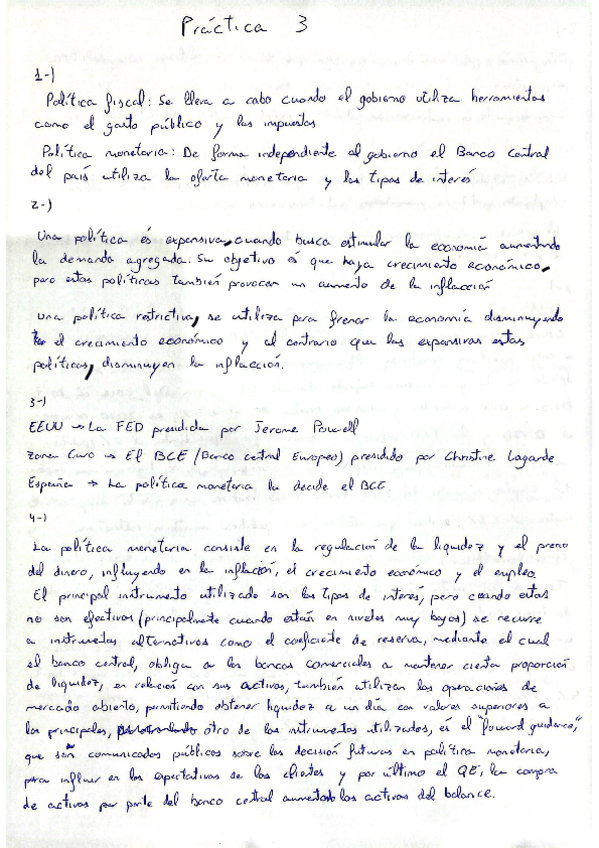 Práctica 3
1-)
Política fiscal: Se lleva a cabo cuando el gobierno utiliza herramientas
como el gasto público y los impuestos
Política monetaria: De forma independiente al gobierno el Banco Central
del país utiliza la oferta monetaria y los tipos de interés
2-)
Una política es expansiva, cuando busca estimular la economía aumentando
la demanda agregada. Su objetivo es que haya crecimiento económico,
pero estas políticas también provocan un aumento de la inflacción
Una política restrictiva, se utiliza para frenar la economía disminuyendo
el crecimiento económico y al contrario que las expansivas estas
políticas, disminuyen la inflacción.
3-)
EEUU → La FED presidida por Jerome Powell
Zona Euro → El BCE (Banco central Europeo) presidido por Christine Lagarde
España → La política monetaria la decide el BCE
4-)
La política monetaria consiste en la regulación de la liquidez y el precio
del dinero, influyendo en la inflación, el crecimiento económico y el empleo.
El principal instrumento utilizado son los tipos de interés, pero cuando estos
no son efectivos (principalmente cuando están en niveles muy bajos) se recurre
a instrumentos alternativos como el coeficiente de reserva, mediante el cual
el banco central, obliga a los bancos comerciales a mantener cierta proporción
de liquidez, en relación con sus activos, también utilizan las operaciones de
mercado abierto, permitiendo obtener liquidez a un día con valores superiores a
los principales, otro de los instrumentos utilizados, es el "foward guidance,"
que son comunicados públicos sobre las decisión futuras en política monetaria,
para influir en las expectativas de los clientes y por último el QE, la compra
de activos por parte del banco central aumentando los activos del balance.